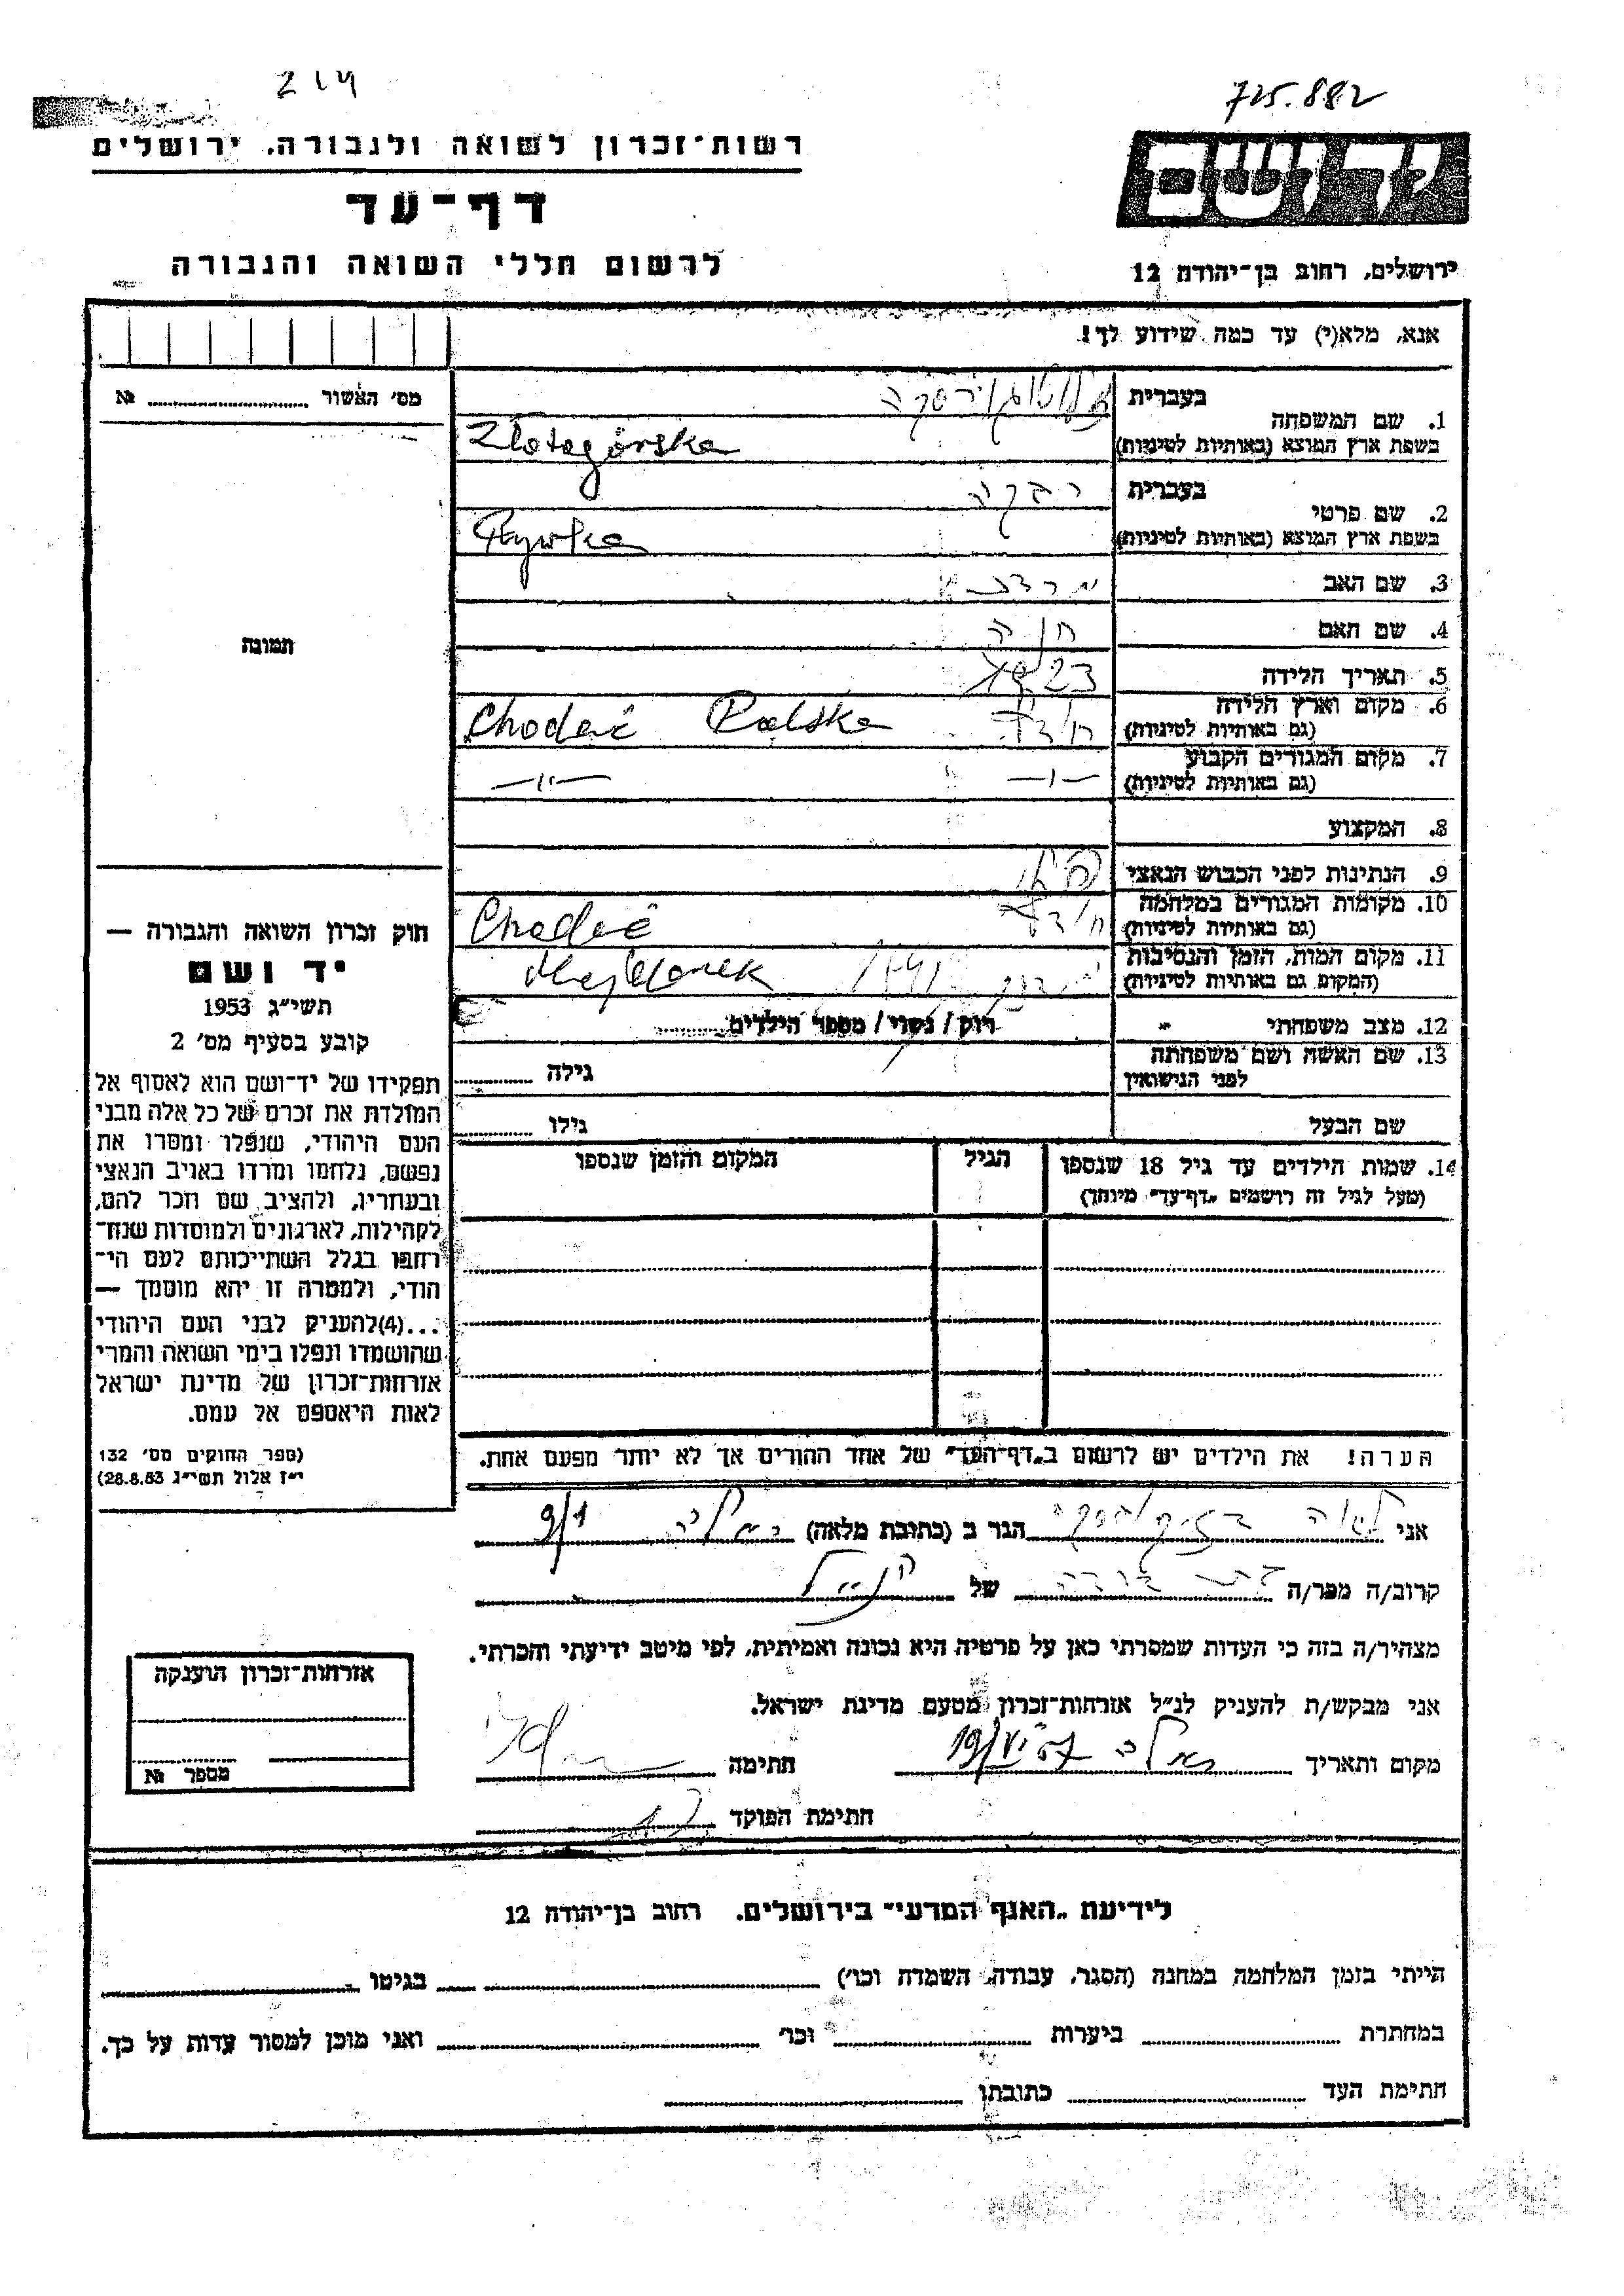 214
725.882
רשות־זכרון לשואה ולגבורה, ירושלים
דף־עד
לרשום חללי השואה והגבורה
ירושלים, רחוב בן־יהודה 12
אנא, מלא(י) עד כמה שידוע לך!
מס׳ האשור №
1. שם המשפחה
בעברית
בשפת ארץ המוצא (באותיות לטיניות) Złotogórska
2. שם פרטי
בעברית רבקה
בשפת ארץ המוצא (באותיות לטיניות) Rywka
3. שם האב
4. שם האם חנה
5. תאריך הלידה 1923
6. מקום וארץ הלידה
(גם באותיות לטיניות) Chodeć Polska
7. מקום המגורים הקבוע
(גם באותיות לטיניות) —"— —"—
8. המקצוע
9. הנתינות לפני הכבוש הנאצי
10. מקומות המגורים במלחמה
(גם באותיות לטיניות) Chodeć
11. מקום המות, הזמן והנסיבות
(המקום גם באותיות לטיניות) Majdanek
12. מצב משפחתי רוק / נשוי / מספר הילדים
13. שם האשה ושם משפחתה
לפני הנישואין גילה
שם הבעל גילו
14. שמות הילדים עד גיל 18 שנספו הגיל המקום והזמן שנספו
(מעל לגיל זה רושמים „דף־עד” מיוחד)
הערה! את הילדים יש לרשום ב„דף־העד” של אחד ההורים אך לא יותר מפעם אחת.
תמונה
חוק זכרון השואה והגבורה —
יד ושם
תשי״ג 1953
קובע בסעיף מס׳ 2
תפקידו של יד־ושם הוא לאסוף אל
המולדת את זכרם של כל אלה מבני
העם היהודי, שנפלו ומסרו את
נפשם, נלחמו ומרדו באויב הנאצי
ובעוזריו, ולהציב שם וזכר להם,
לקהילות, לארגונים ולמוסדות שנח־
רבו בגלל השתייכותם לעם הי־
הודי, ולמטרה זו יהא מוסמך —
...(4) להעניק לבני העם היהודי
שהושמדו ונפלו בימי השואה והמרי
אזרחות־זכרון של מדינת ישראל
לאות היאספם אל עמם.
(ספר החוקים מס׳ 132
י״ז אלול תשי״ג 28.8.53)
אני לאה הגר ב (כתובת מלאה) רמלה
קרוב/ה מכר/ה של
מצהיר/ה בזה כי העדות שמסרתי כאן על פרטיה היא נכונה ואמיתית, לפי מיטב ידיעתי והכרתי.
אני מבקש/ת להעניק לנ״ל אזרחות־זכרון מטעם מדינת ישראל.
מקום ותאריך רמלה חתימה
חתימת הפוקד
אזרחות־זכרון הוענקה
מספר №
לידיעת „האגף המדעי” בירושלים, רחוב בן־יהודה 12
הייתי בזמן המלחמה במחנה (הסגר, עבודה, השמדה וכו׳) בגיטו
במחתרת ביערות וכו׳ ואני מוכן למסור עדות על כך.
חתימת העד כתובתו